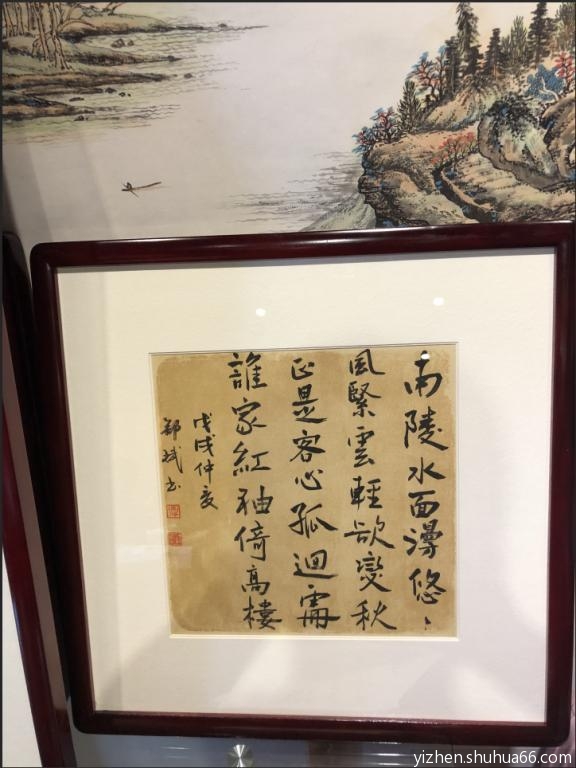 南陵水面漫悠々
風緊雲輕欲變秋
正是客心孤迴處
誰家紅袖倚高樓
戊戌仲夏
斌书
yizhen.shuhua66.com